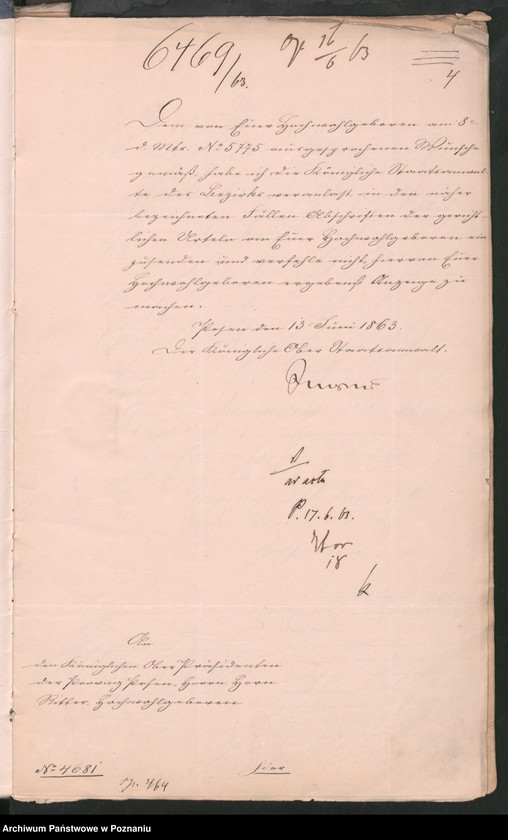 6469/63.
16/6 63
4
Dem von Euer Hochwohlgeboren am 8ten
d. Mts. No 5775 ausgesprochenen Wunsche
gemäß, habe ich die Königliche Staatsanwal-
te des Bezirks veranlaßt, in den näher
bezeichneten Fällen Abschriften der gericht-
lichen Urteln an Euer Hochwohlgeboren ein-
zusenden und verfehle nicht, hiervon Euer
Hochwohlgeboren ergebenst Anzeige zu
machen.
Posen den 13 Juni 1863.
Der Königliche Ober Staatsanwalt.
ad acta
P. 17.6.63.
18
An
den Königlichen Ober Präsidenten
der Provinz Posen, Herrn Horn
Ritter, Hochwohlgeboren
No 4681
hier
Archiwum Państwowe w Poznaniu